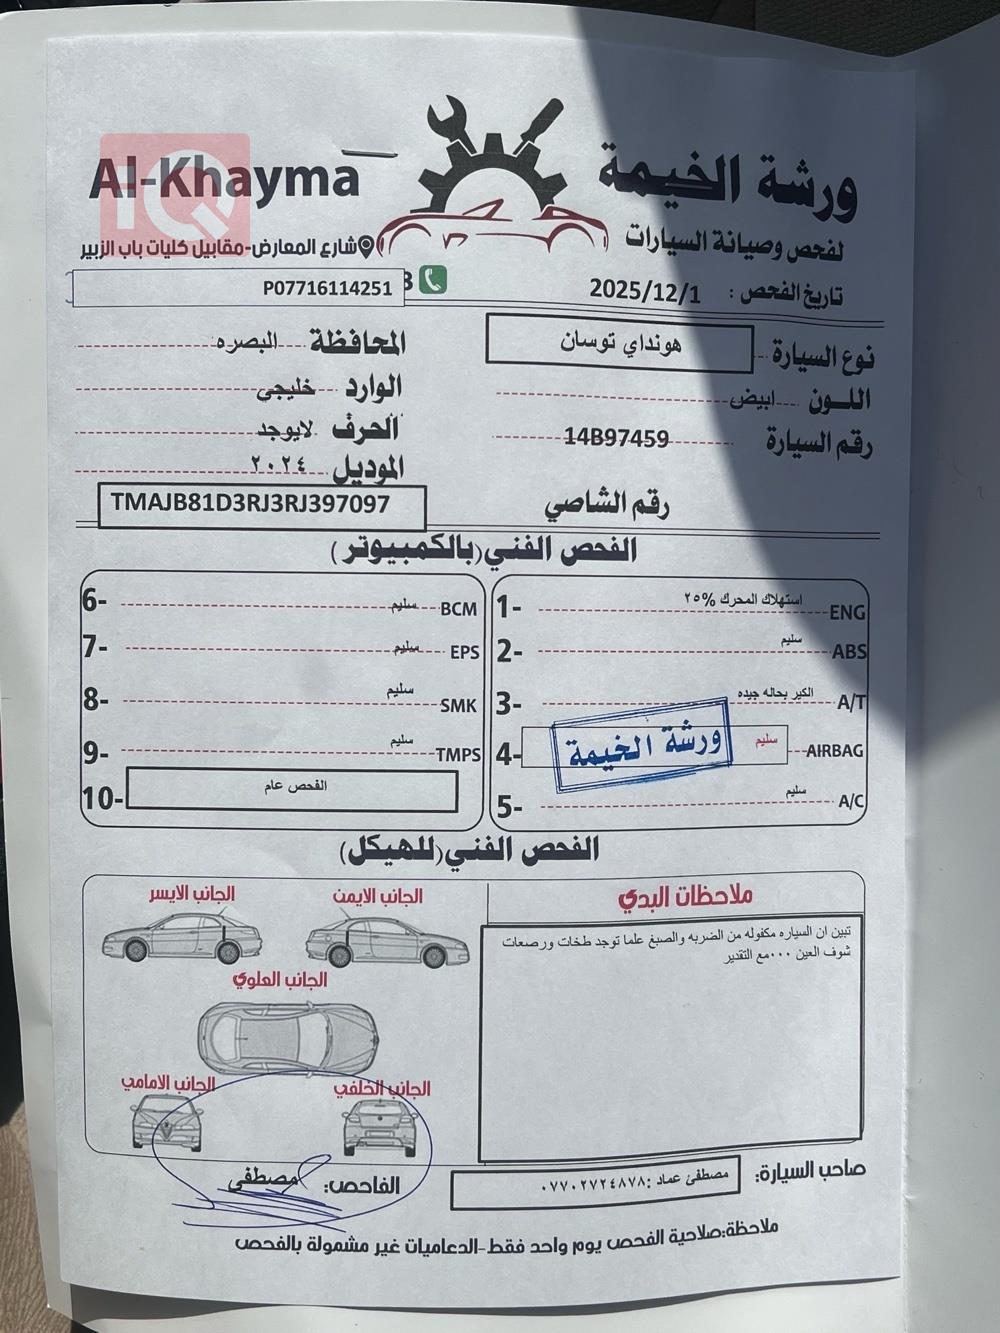 ورشة الخيمة
Al-Khayma
IQ
لفحص وصيانة السيارات
شارع المعارض-مقابيل كليات باب الزبير
تاريخ الفحص : 2025/12/1
P07716114251
نوع السيارة هونداي توسان
المحافظة البصره
اللون ابيض
الوارد خليجي
رقم السيارة 14B97459
الحرف لايوجد
الموديل ٢٠٢٤
رقم الشاصي TMAJB81D3RJ3RJ397097
الفحص الفني(بالكمبيوتر)
1- استهلاك المحرك %٢٥ ENG
2- سليم ABS
3- الكير بحاله جيده A/T
4- سليم AIRBAG
ورشة الخيمة
5- سليم A/C
6- سليم BCM
7- سليم EPS
8- سليم SMK
9- سليم TMPS
10- الفحص عام
الفحص الفني(للهيكل)
ملاحظات البدي
تبين ان السياره مكفوله من الضربه والصبغ علما توجد طخات ورصعات
شوف العين ٠٠٠مع التقدير
الجانب الايمن
الجانب الايسر
الجانب العلوي
الجانب الخلفي
الجانب الامامي
صاحب السيارة: مصطفئ عماد :٠٧٧٠٢٧٢٤٨٧٨
الفاحص: مصطفى
ملاحظة:صلاحية الفحص يوم واحد فقط-الدعاميات غير مشمولة بالفحص